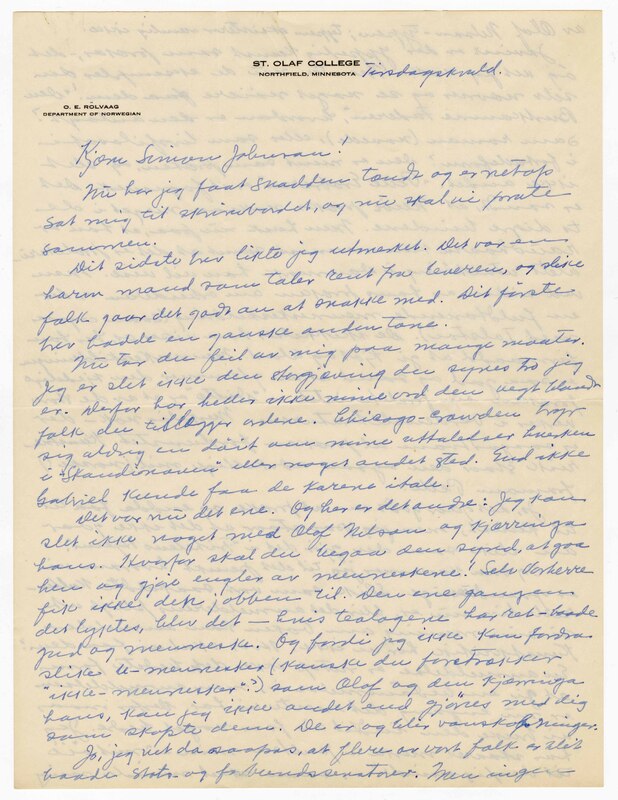 ST. OLAF COLLEGE
NORTHFIELD, MINNESOTA
Tirsdagskveld.
O. E. RÖLVAAG
DEPARTMENT OF NORWEGIAN
Kjære Simon Johnson!
Nu har jeg faat snadden tændt og er netop
sat mig til skrivebordet, og nu skal vi prate
sammen.
Dit sidste brev likte jeg utmerket. Det var en
harm mand som taler rent fra leveren, og slike
folk gaar det godt an at snakke med. Dit første
brev hadde en ganske anden tone.
Nu tar du feil av mig paa mange maater.
Jeg er slet ikke den storgjæving du synes tro jeg
er. Derfor har heller ikke mine ord den vegt blandt
folk du tillægger ordene. Chicago-crowden bryr
sig aldrig en döit om mine uttalelser hverken
i "Skandinaven" eller noget andet sted. End ikke
Gabriel kunde faa de karene i tale.
Det var nu det ene. Og her er det andre: Jeg kan
slet ikke noget med Olof Nelson og kjærringa
hans. Hvorfor skal du begaa den synd, at gaa
hen og gjøre engler av menneskene! Selv Vorherre
fik ikke den jobben til. Den ene gangen
det lyktes, blev det — hvis teologene har ret – baade
gud og menneske. Og fordi jeg ikke kan fordra
slike u-mennesker (kanske du foretrækker
"ikke-mennesker"?) som Olof og den kjærringa
hans, kan jeg ikke andet end gjöres med dig
som skapte dem. De er og blir vanskapninger.
Jo, jeg vet da saapas, at flere av vort folk er blit
baade stats- og forbundssenatorer. Men ingen